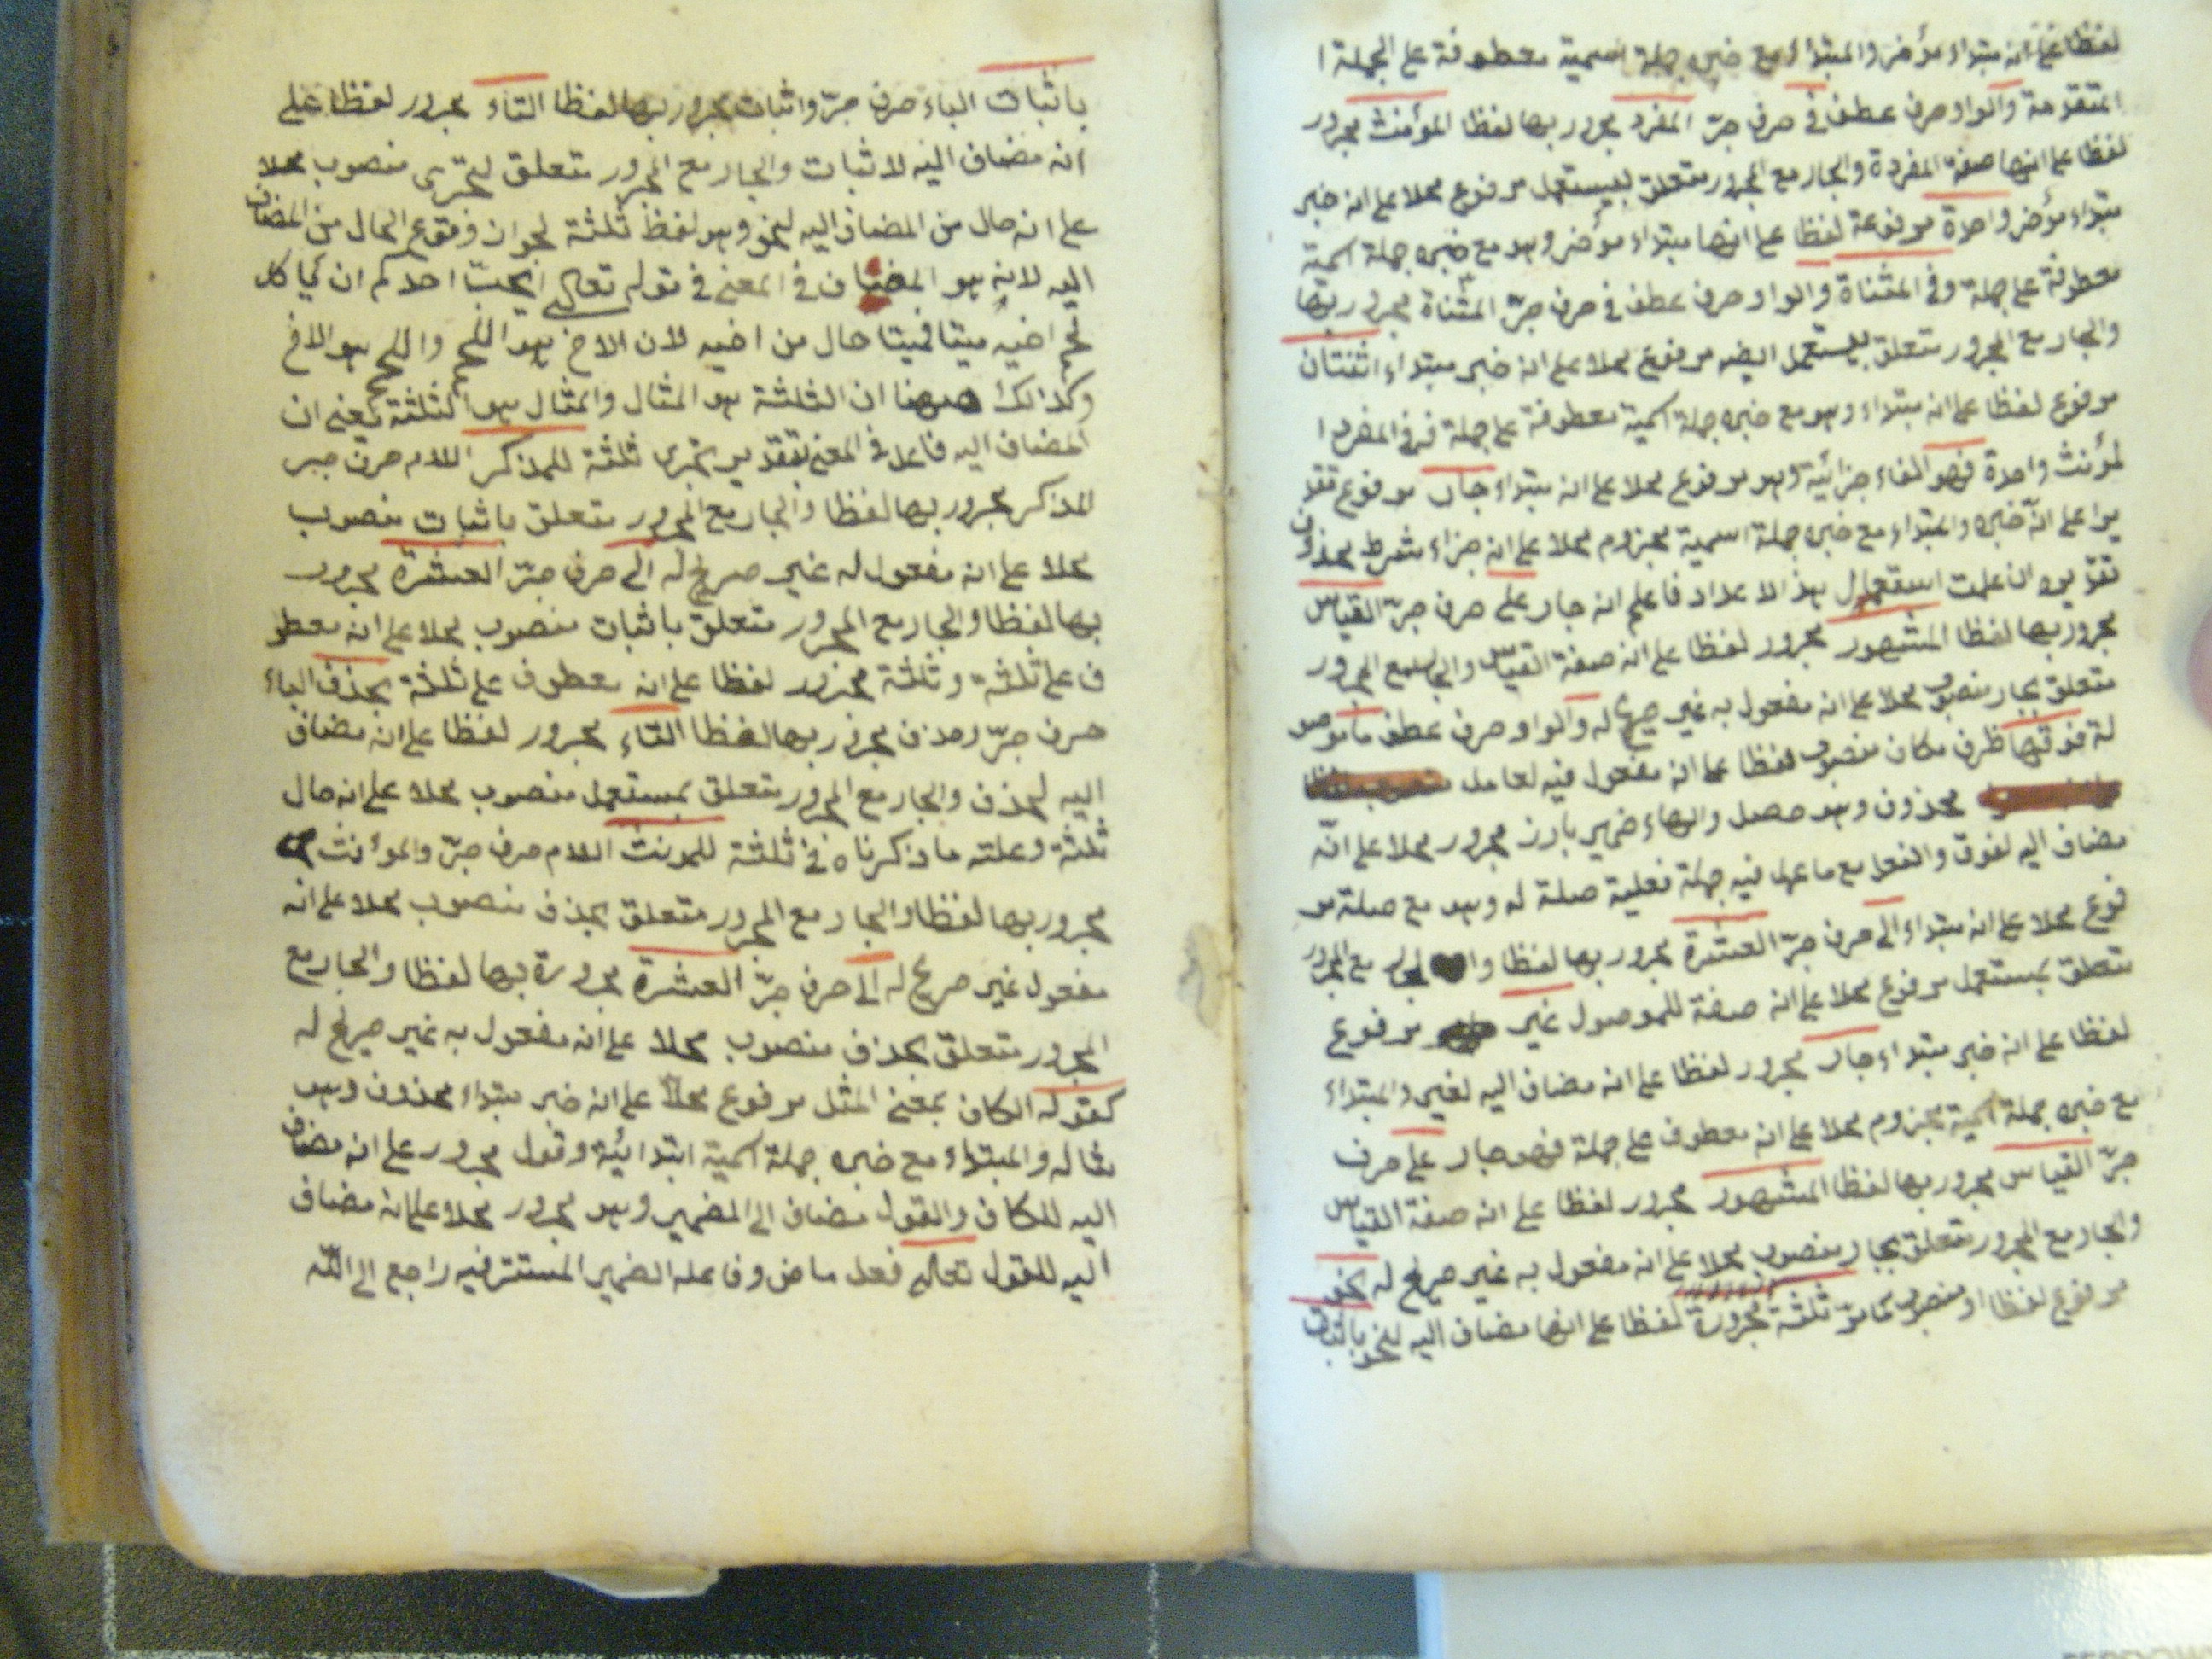 لفظا على انه مبتداء مؤخر والمبتداء مع خبره جملة اسمية معطوفة على الجملة ا
المتقدمة والواو حرف عطف في حرف جرّ المفرد مجرور بها لفظا المؤنث مجرور
لفظا على انها صفة المفردة والجار مع المجرور متعلق ليستعمل مرفوع محلا على انه خبر
مبتداء مؤخر واحدة مرفوعة لفظا على انها مبتداء مؤخر وهو مع خبره جملة اسمية
معطوفة على جملة وفى المثناة والواو حرف عطف في حرف جرّ المثناة مجرور بها
والجار مع المجرور متعلق بيستعمل ايضه مرفوع محلا على انه خبر مبتداء اثنتان
مرفوع لفظا على انه مبتداء وهو مع خبره جملة اسمية معطوفة على جملة في المفرد ا
لمؤنث واحدة فهو الفاء جزائية وهو مرفوع محلا على انه مبتداء جار مرفوع تقد
يرا على انّه خبره والمبتداء مع خبره جملة اسمية مجزوم محلا على انه جزاء شرط محذوف
تقديره ان علمت استعمال هذ الاعداد فاعلم انه جار على حرف جرّ القياس
مجرور بها لفظا المشهور مجرور لفظا على انه صفة القياس والجار مع المجرور
متعلق بجار منصوب محلا على انه مفعول به غير صريح له والواو حرف عطف ما موصو
لة فوقها ظرف مكان منصوب لفظا على انه مفعول فيه لعامل
محذوف وهو حصل والهاء ضمير بارز مجرور محلا على انّه
مضاف اليه لفوق والفعل مع ما عمل فيه جملة فعلية صلة له وهو مع صلة مر
فوع محلا على انه مبتداء الى حرف جرّ العشرة مجرور بها لفظا والجار مع المجرور
متعلق بمستعمل مرفوع محلا على انه صفة للموصول غير مرفوع
لفظا على انه خبر مبتداء جار مجرور لفظا على انه مضاف اليه لغير والمبتداء
مع خبره جملة اسمية مجزوم محلا على انه معطوف على جملة فهو جار على حرف
جرّ القياس مجرور بها لفظا المشهور مجرور لفظا على انه صفة القياس
والجار مع المجرور متعلق بجار منصوب محلا على انه مفعول به غير صريح له نحو
مرفوع لفظا او منصوب كما مرّ ثلثة مجرورة لفظا على انها مضاف اليه لنحو باثبات
باثبات الباء حرف جرّ واثبات مجرور بها لفظا التاء مجرور لفظا على
انه مضاف اليه لاثبات والجار مع المجرور متعلق ليجرى منصوب محلا
على انه حال من المضاف اليه لنحو وهو لفظ ثلثة لجواز وقوع الحال من المضاف
اليه لانه هو المضاف في المعنى في قوله تعالى ايحبّ احدكم ان يأكل
لحم اخيه ميتا فميتا حال من اخيه لان الاخ هو اللحم واللحم هو الاخ
وكذالك ههنا ان الثلثة هو المثال والمثال هو الثلثة يعنى ان
المضاف اليه فاعل في المعنى بتقدير يجرى ثلثة للمذكر اللام حرف جر
المذكر مجرور بها لفظا والجار مع المجرور متعلق باثبات منصوب
محلا على انه مفعول له غير صريح له الى حرف جرّ العشرة مجرور
بها لفظا والجار مع المجرور متعلق باثبات منصوب محلا على انه معطو
ف على ثلثة وثلثة مجرور لفظا على انه معطوف على ثلثة بحذف الباء
حرف جرّ وحذف مجرور بها لفظا التاء مجرور لفظا على انه مضاف
اليه لحذف والجار مع المجرور متعلق بمستعمل منصوب محلا على انه حال
ثلثة وعلته ما ذكرناه في ثلثة للمونث اللام حرف جرّ والمؤنث
مجرور بها لفظا والجار مع المجرور متعلق بحذف منصوب محلا على انه
مفعول غير صريح له الى حرف جرّ العشرة مجرورة بها لفظا والجار مع
المجرور متعلق بحذف منصوب محلا على انه مفعول به غير صريح له
كقوله الكاف بمعنى المثل مرفوع محلا على انه خبر مبتداء محذوف وهو
مثاله والمبتداء مع خبره جملة اسمية ابتدائية وقول مجرور على انه مضاف
اليه للكاف والقول مضاف الى الضمير وهو مجرور محلا على انه مضاف
اليه للقول تعالى فعل ماض وفاعله الضمير المستتر فيه راجع الى الله